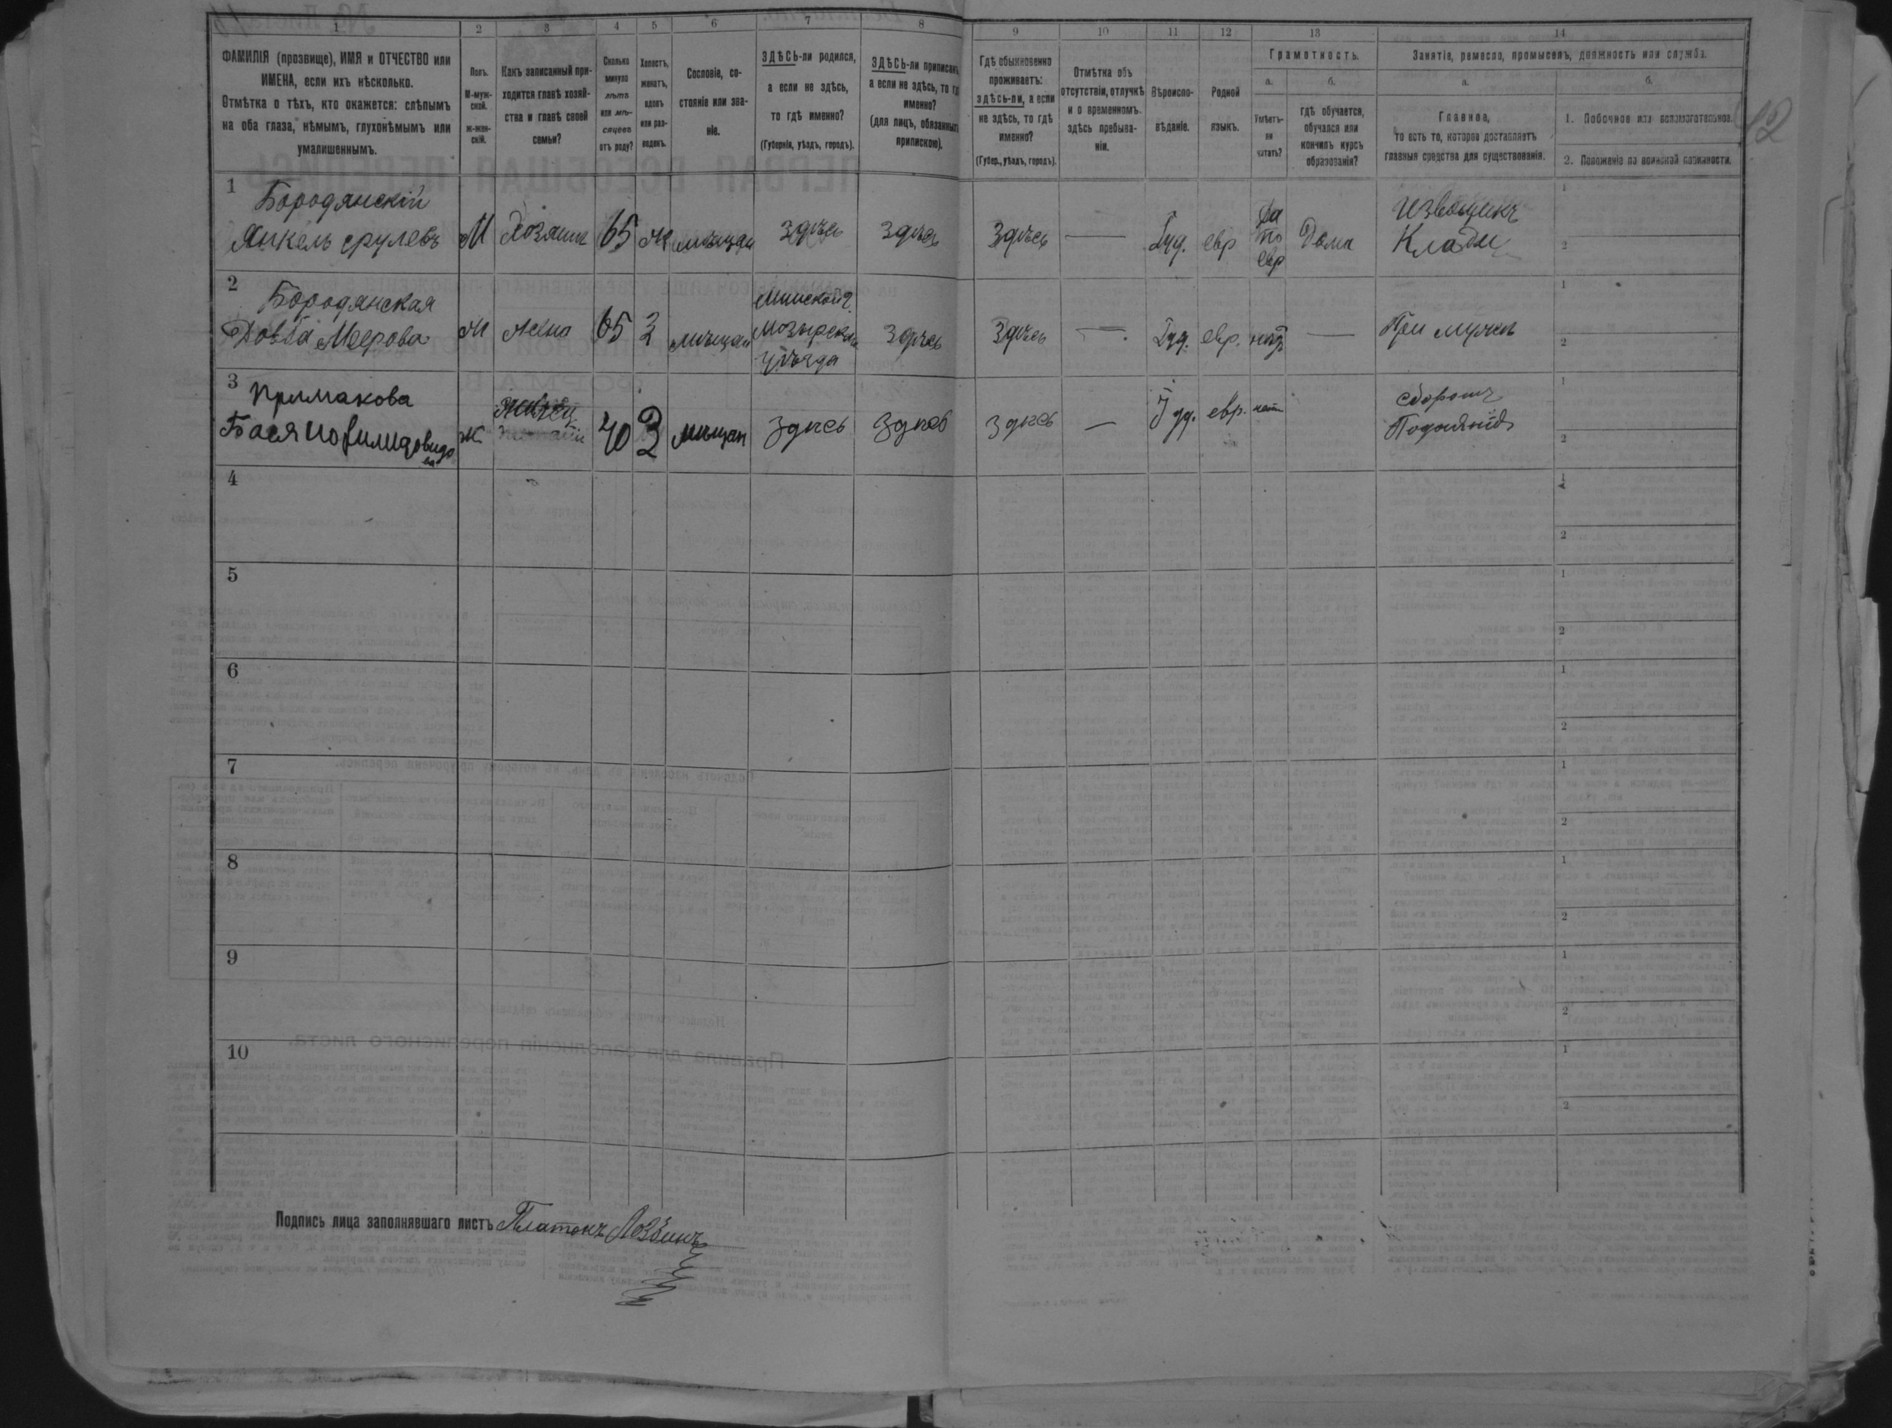 1 2 3 4 5 6 7 8 9 10 11 12 13 14
ФАМИЛІЯ (прозвище), ИМЯ и ОТЧЕСТВО или
ИМЕНА, если ихъ нѣсколько.
Отмѣтка о тѣхъ, кто окажется: слѣпымъ
на оба глаза, нѣмымъ, глухонѣмымъ или
умалишеннымъ.
Полъ.
М-муж-
ской.
ж-жен-
скій.
Какъ записанный при-
ходится главѣ хозяй-
ства и главѣ своей
семьи?
Сколько
минуло
лѣтъ
или мѣ-
сяцевъ
отъ роду?
Холостъ,
женатъ,
вдовъ
или раз-
веденъ.
Сословіе, со-
стояніе или зва-
ніе.
ЗДѢСЬ-ли родился,
а если не здѣсь,
то гдѣ именно?
(Губернія, уѣздъ, городъ).
ЗДѢСЬ-ли приписанъ,
а если не здѣсь, то гдѣ
именно?
(для лицъ, обязанныхъ
припискою).
Гдѣ обыкновенно
проживаетъ:
здѣсь-ли, а если
не здѣсь, то гдѣ
именно?
(Губер., уѣздъ, городъ).
Отмѣтка объ
отсутствіи, отлучкѣ
и о временномъ
здѣсь пребыва-
ніи.
Вѣроиспо-
вѣданіе.
Родной
языкъ.
Грамотность.
а.
Умѣетъ-
ли
читать?
б.
гдѣ обучается,
обучался или
кончилъ курсъ
образованія?
Занятіе, ремесло, промыселъ, должность или служба.
а.
Главное,
то есть то, которое доставляетъ
главныя средства для существованія.
б.
1. Побочное или вспомогательное.
2. Положеніе по воинской повинности.
12
1
Бородянскій
Янкель Срулевъ М Хозяинъ 65 ж мѣщан здѣсь здѣсь здѣсь — Іуд. евр да по евр Дома
Извощикъ
Клади
1
2
2
Бородянская
Довба Меерова Ж жена 65 З мѣщан
Минской г.
Мозырскаго
уѣзда
здѣсь здѣсь — Іуд. евр. нѣтъ — При мужѣ
1
2
3
Примакова
Бася ж 40 мѣщан здѣсь здѣсь здѣсь — Іуд. евр. нѣтъ
1
2
4
1
2
5
1
2
6
1
2
7
1
2
8
1
2
9
1
2
10
1
2
Подпись лица заполнявшаго листъ Платонъ